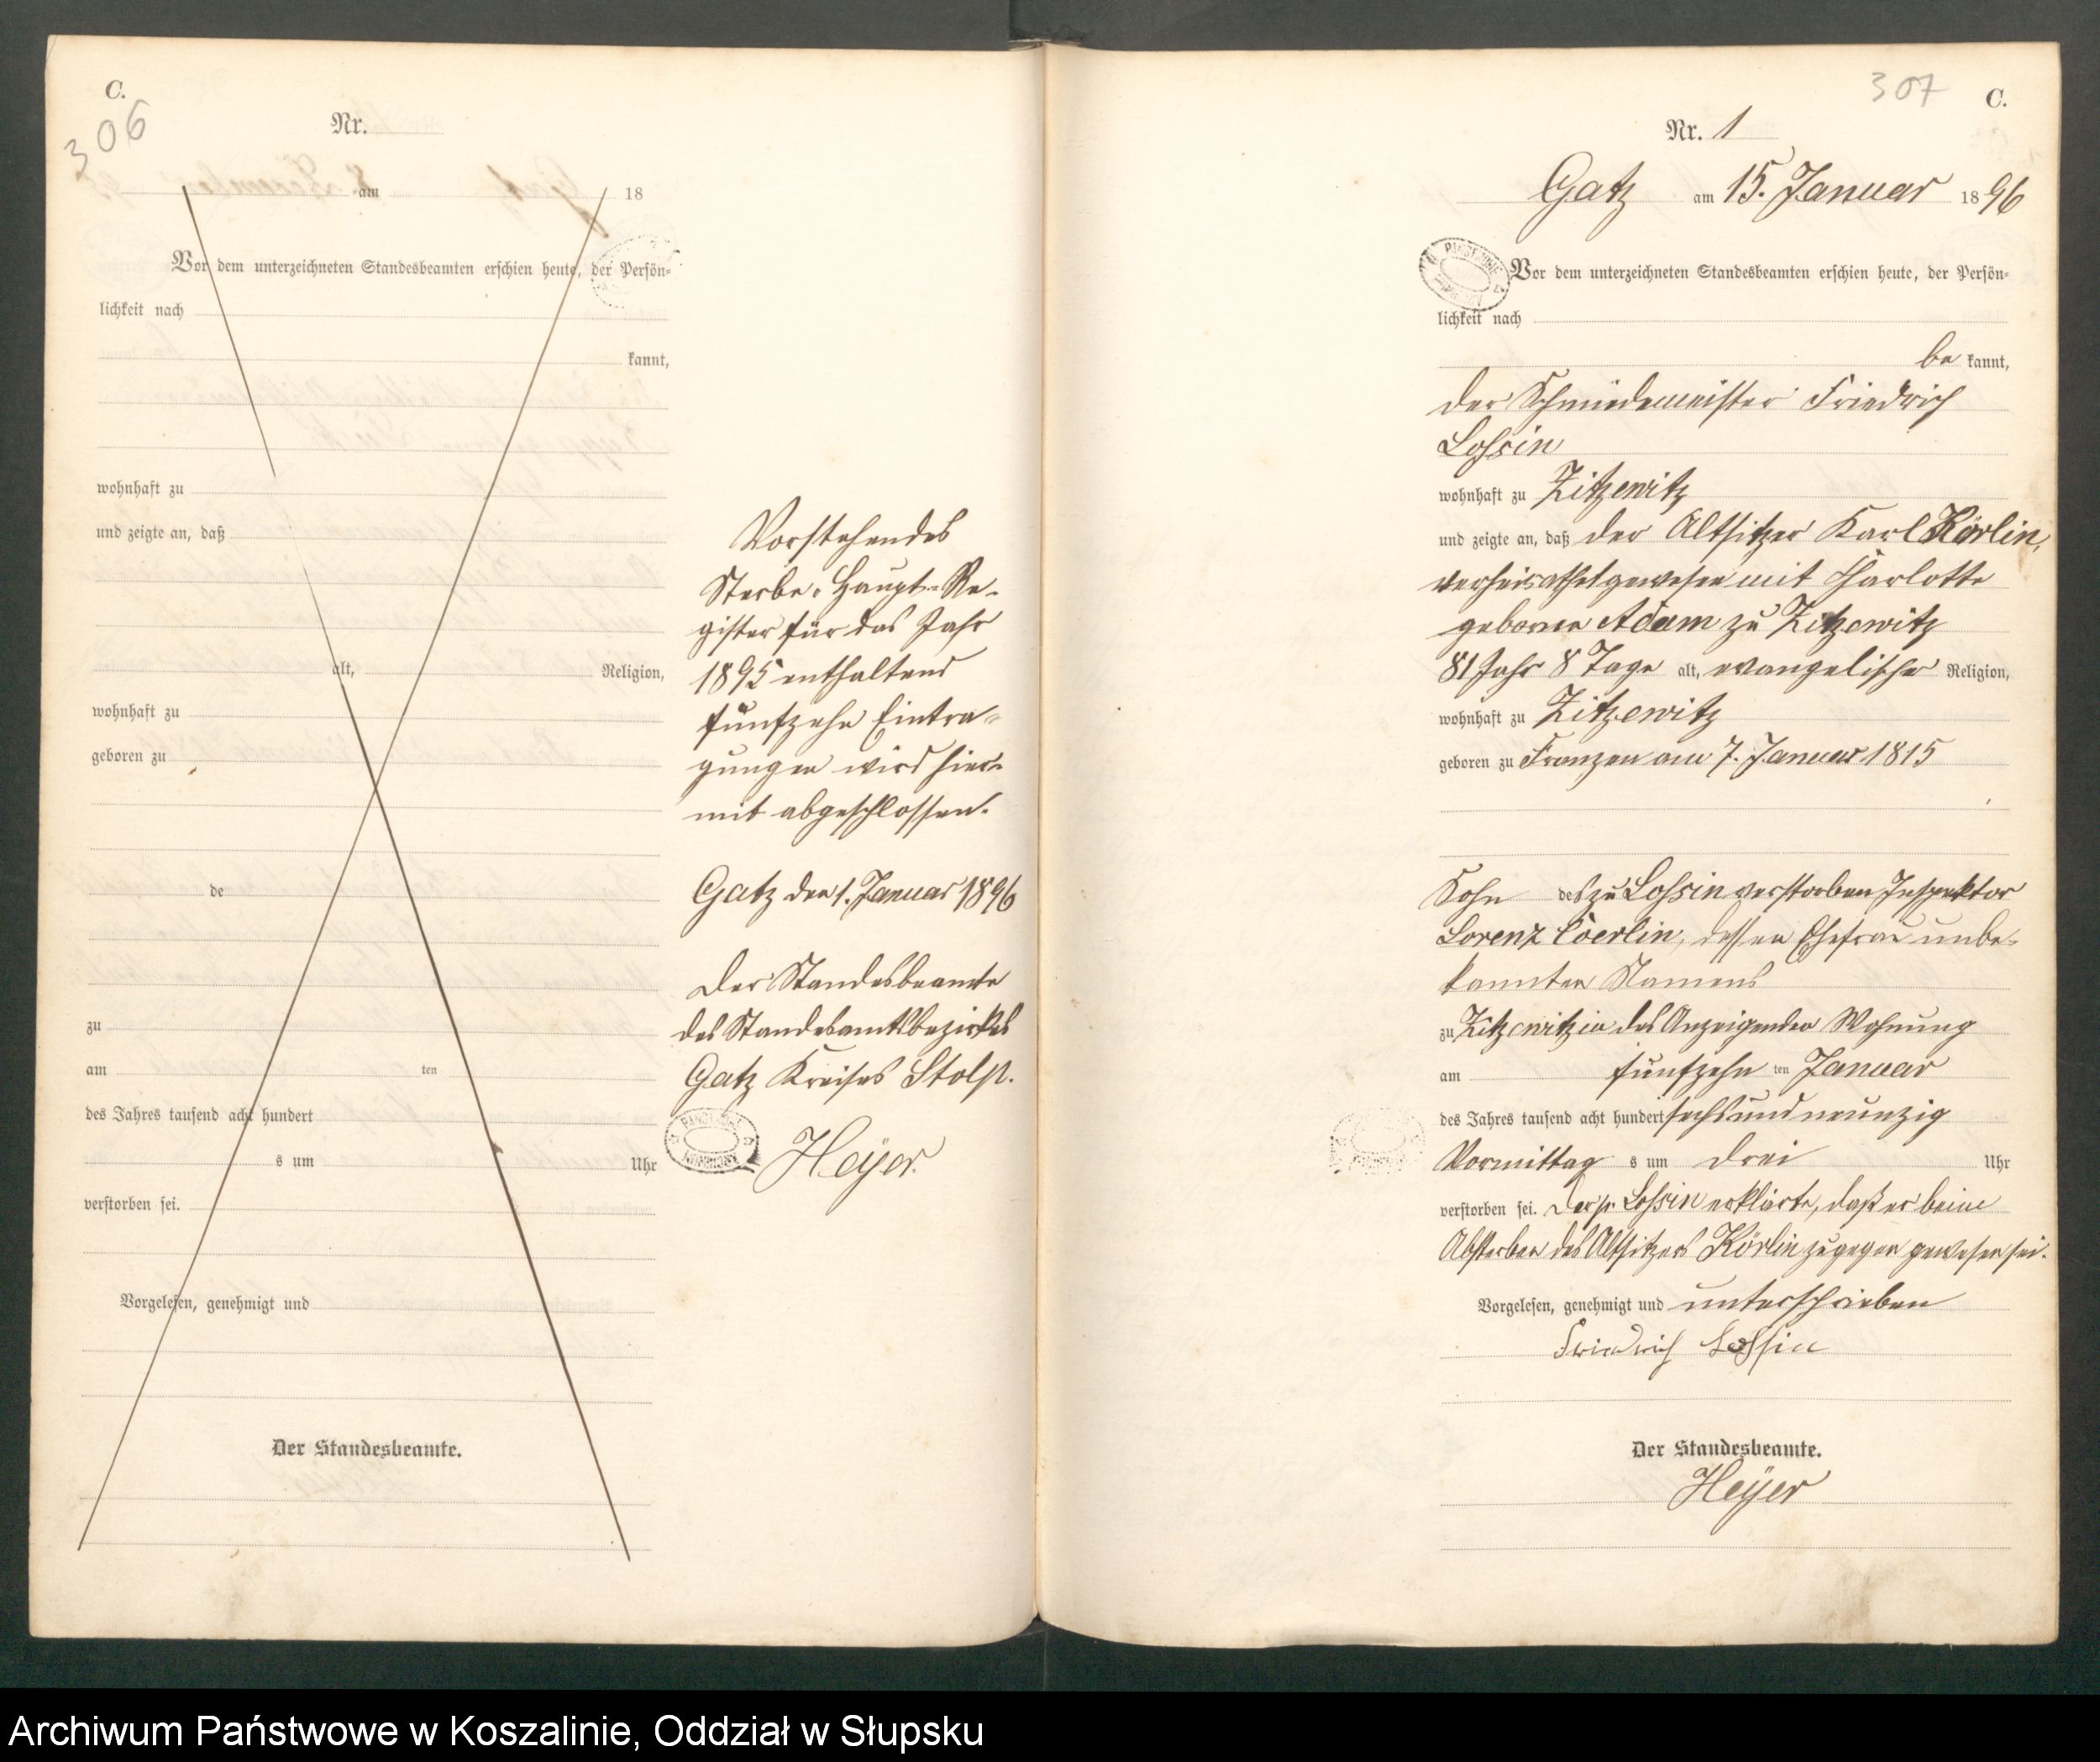 C.
306
Nr.
am 18
Vor dem unterzeichneten Standesbeamten erschien heute, der Persön-
lichkeit nach
kannt,
wohnhaft zu
und zeigte an, daß
alt, Religion,
wohnhaft zu
geboren zu
de
zu
am ten
des Jahres tausend acht hundert
s um Uhr
verstorben sei.
Vorgelesen, genehmigt und
Der Standesbeamte.
Vorstehendes
Sterbe-Haupt-Re-
gister für das Jahr
1895 enthaltend
fünfzehn Eintra-
gungen wird hier-
mit abgeschlossen.
Gatz den 1. Januar 1896
Der Standesbeamte
des Standesamtsbezirkes
Gatz Kreises Stolp.
Heÿer.
307
C.
Nr. 1
Gatz am 15. Januar 1896
Vor dem unterzeichneten Standesbeamten erschien heute, der Persön-
lichkeit nach
be kannt,
der Schmiedemeister Friedrich
Lossin
wohnhaft zu Zitzewitz
und zeigte an, daß der Altsitzer Karl Körlin,
verheirathet gewesen mit Charlotte
geborene Adam zu Zitzewitz
81 Jahr 8 Tage alt, evangelischer Religion,
wohnhaft zu Zitzewitz
geboren zu Franzen am 7. Januar 1815
Sohn des zu Lossin verstorben Inspektor
Lorenz Coerlin, dessen Ehefrau unbe-
kannten Namens
zu Zitzewitz in des Anzeigenden Wohnung
am fünfzehn ten Januar
des Jahres tausend acht hundert sechs und neunzig
Vormittag s um drei Uhr
verstorben sei. Der p. Lossin erklärte, daß er beim
Absterben des Altsitzers Körlin zugegen gewesen sei.
Vorgelesen, genehmigt und unterschrieben
Friedrich Lossin
Der Standesbeamte.
Heÿer
Archiwum Państwowe w Koszalinie, Oddział w Słupsku